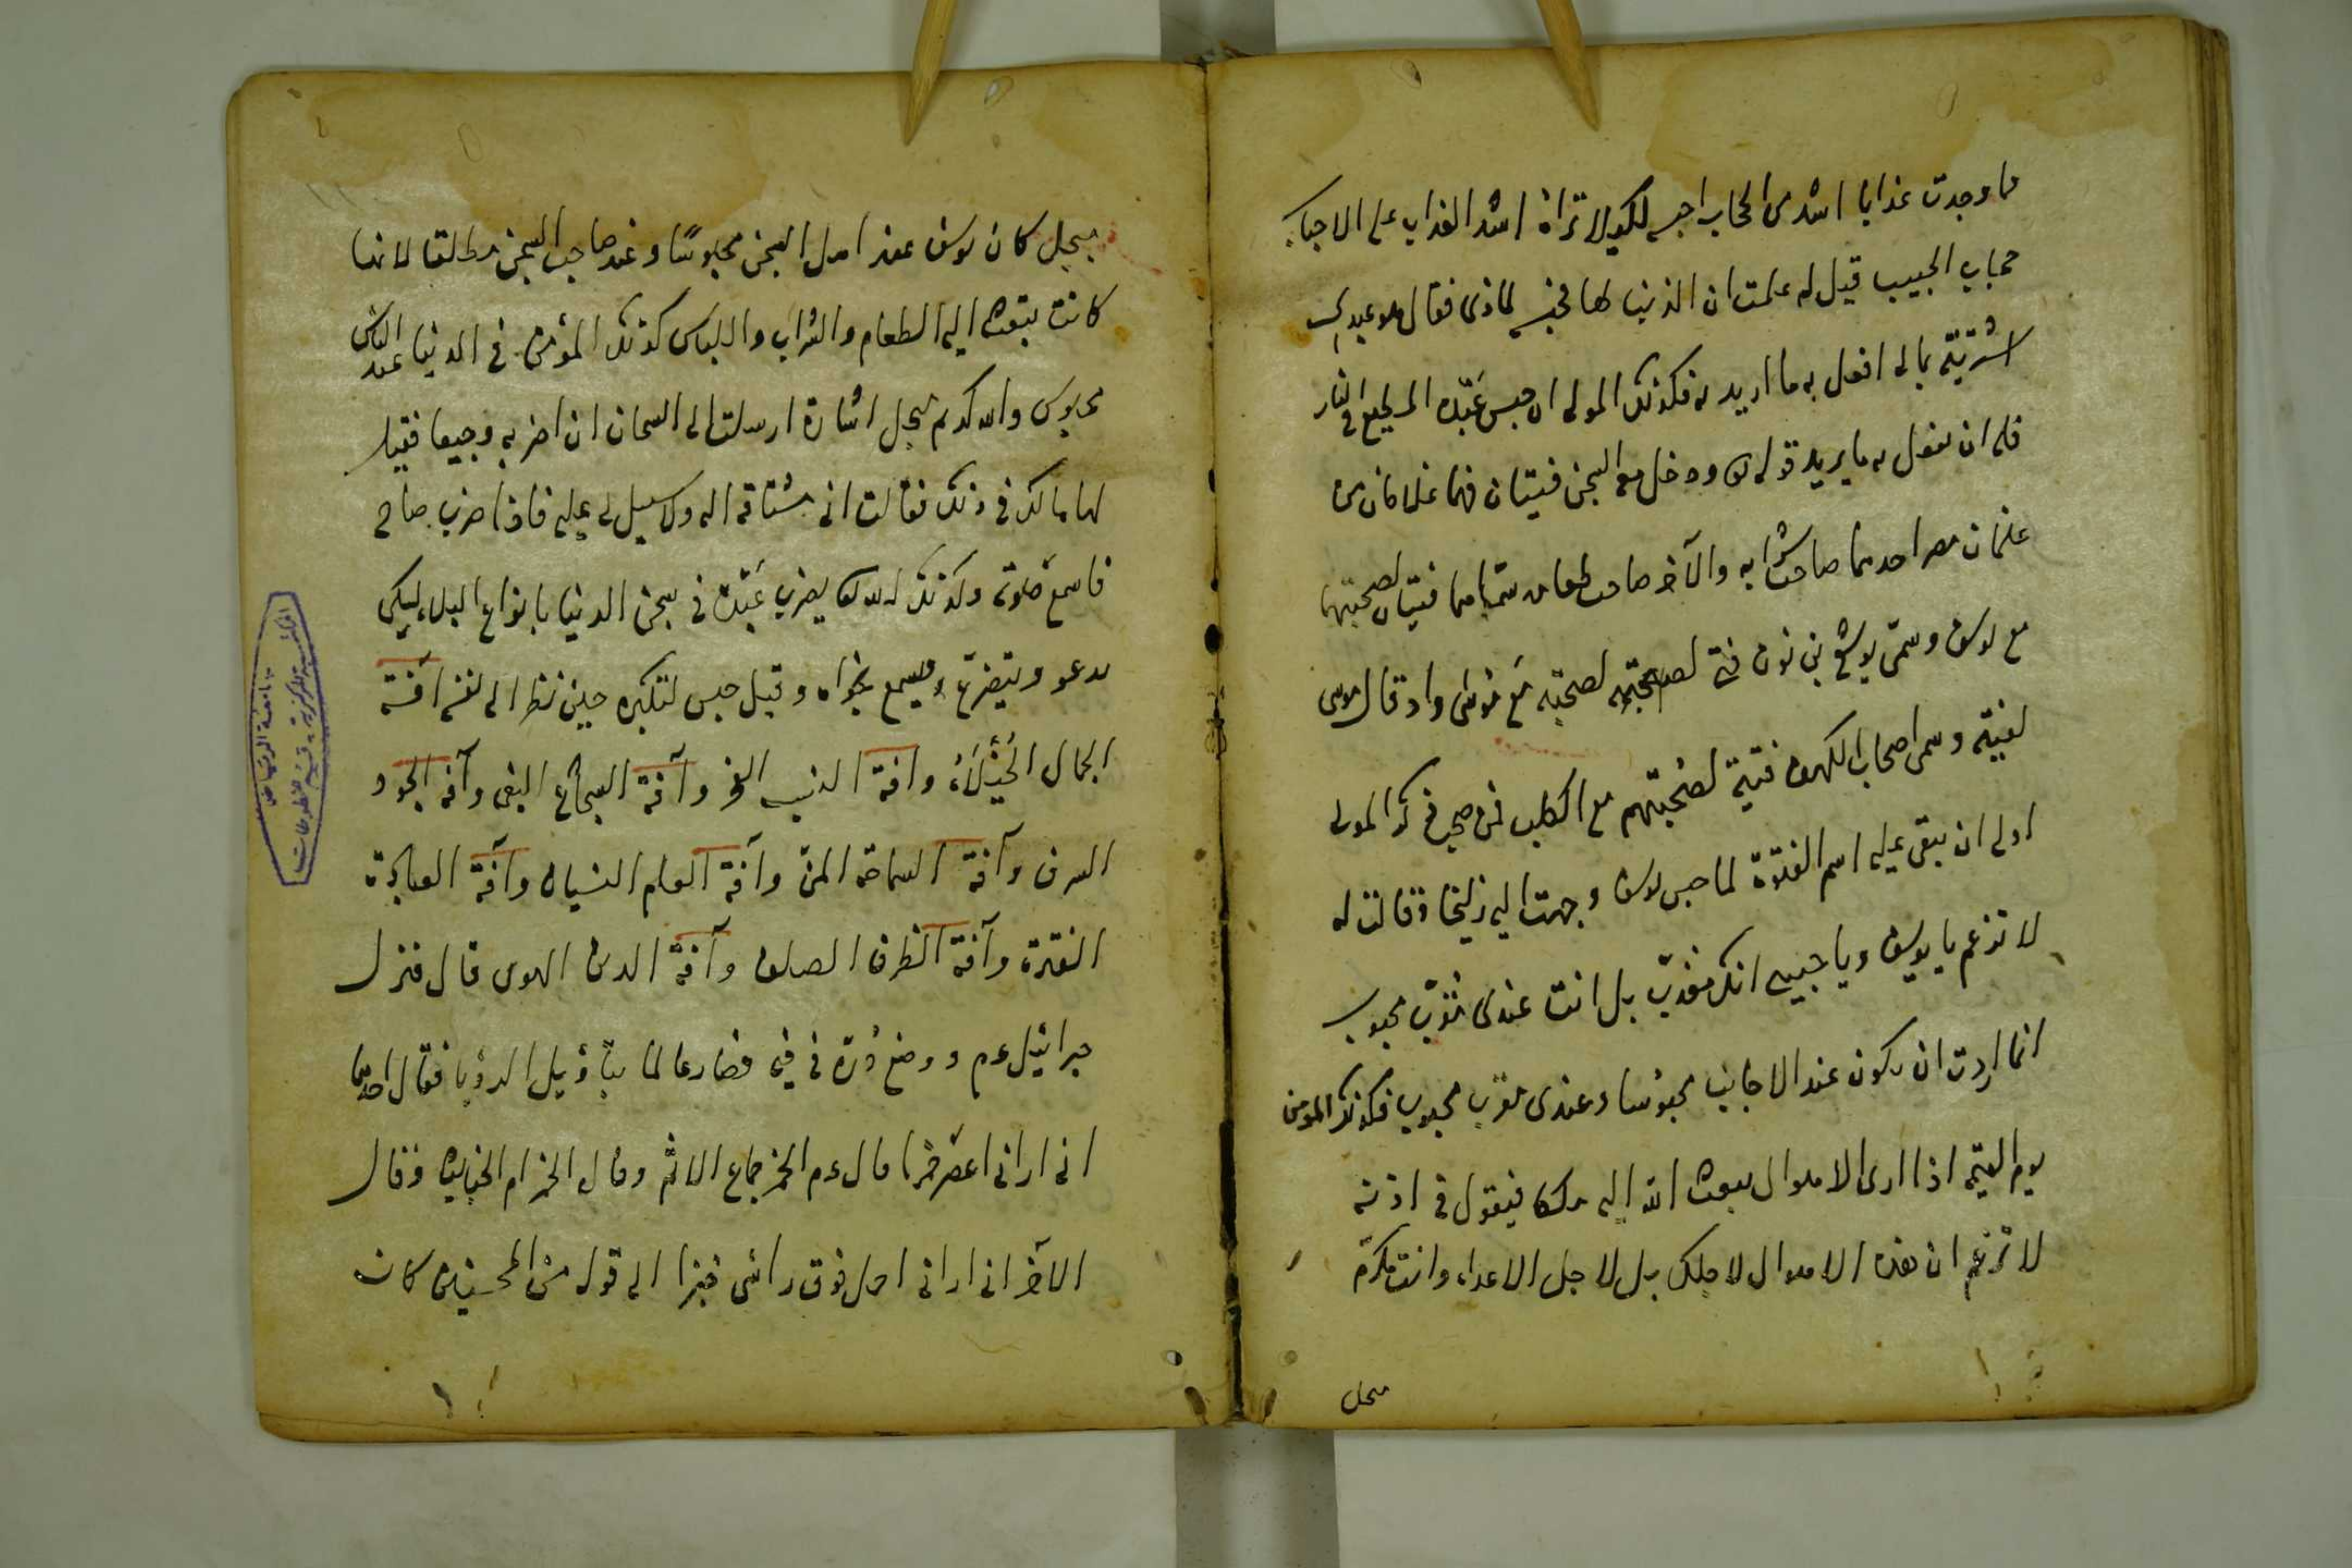 ما وجدت عذابا اشد من الحجاب احبسه لكيلا تراه اشد العذاب على الاحباب
حجاب الحبيب قيل له علمت ان الذنب لها فحبس لماذى فقال هو عبدى
اشتريته بمالى افعل به ما اريد فكذلك المولى ان حبس عبده المطيع فى النار
فله ان يفعل به ما يريد قوله تع ودخل معه السجن فتيان فهما غلامان من
غلمان مصر احدهما صاحب شرابه والآخر صاحب طعامه سماهما فتيان لصحبتهما
مع يوسف وسمى يوشع بن نون فتى لصحبته مع موسى واذ قال موسى
لفتيه وسمى اصحاب الكهف فتية لصحبتهم مع الكلب فمن صحب ذكر المولى
اولى ان يبقى عليه اسم الفتوة لما حبس يوسف وجهت اليه زليخا وقالت له
لا تزعم يا يوسف ويا حبيبى انك معذب بل انت عندى مقرب محبوب
انما اردت ان تكون عند الاجانب محبوسا وعندى مقرب محبوب فكذلك المؤمن
يوم القيمة اذا ارى الاهوال يبعث الله اليه ملكا فيقول فى اذنه
لا تزعم ان هذه الاهوال لاجلك بل لاجل الاعداء وانت مكرم
مبجل
مبجل كان يوسف عند اهل السجن محبوسًا وعند صاحب السجن مطلقا لانها
كانت تبعث اليه الطعام والشراب واللباس كذلك المؤمن فى الدنيا عند الناس
محبوس وهو مكرم مبجل اشارة ارسلت الى السجان ان اضربه وجيعا فقيل
لها مالك فى ذلك فقالت انى مشتاقة اليه ولا سبيل لى عليه فاذا ضرب صاح
فاسمع صوته وكذلك الله تعالى يضرب عبده فى سجن الدنيا بانواع البلاء ليبكى
يدعو ويتضرع ويسمع نجواه وقيل حبس لتكبره حين نظر الى نفسه آفة
الجمال الخيلاء وآفة النسب الفخر وآفة الشجاع البغى وآفة الجود
السرف وآفة السماحة المن وآفة العلم النسيان وآفة العبادة
الفترة وآفة الظرف الصلف وآفة الدين الهوى قال فنزل
جبرائيل عم ووضع دُرّة فى فيه فصار عالما بتأويل الرؤيا فقال احدهما
انى ارانى اعصر خمرا قال عم الخمر جماع الاثم وقال الخمر ام الخبايث وقال
الآخر انى ارانى احمل فوق راسى خبزا الى قوله من المحسنين كان
جامعة الرياض
المكتبة المركزية قسم المخطوطات